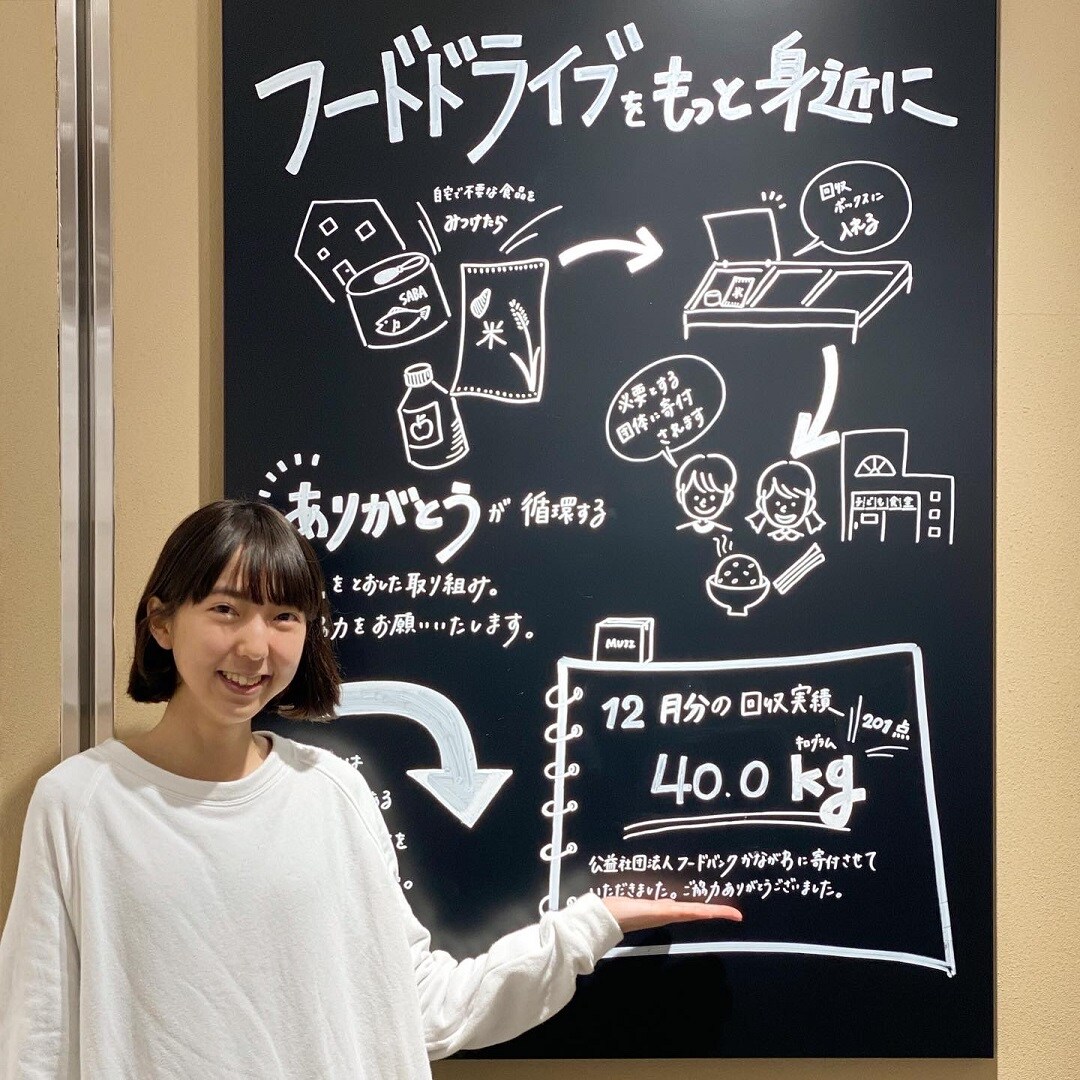 フードドライブをもっと身近に
自宅で不要な食品を
みつけたら
SABA
米
回収
ボックスに
入れる
米
必要とする
団体に寄付
されます
子ども食堂
ありがとうが循環する
をとおした取り組み。
協力をお願いいたします。
MUJI
12月分の回収実績
201点
キログラム
40.0kg
公益社団法人フードバンクかながわに寄付させて
いただきました。ご協力ありがとうございました。
は
ある
を
。